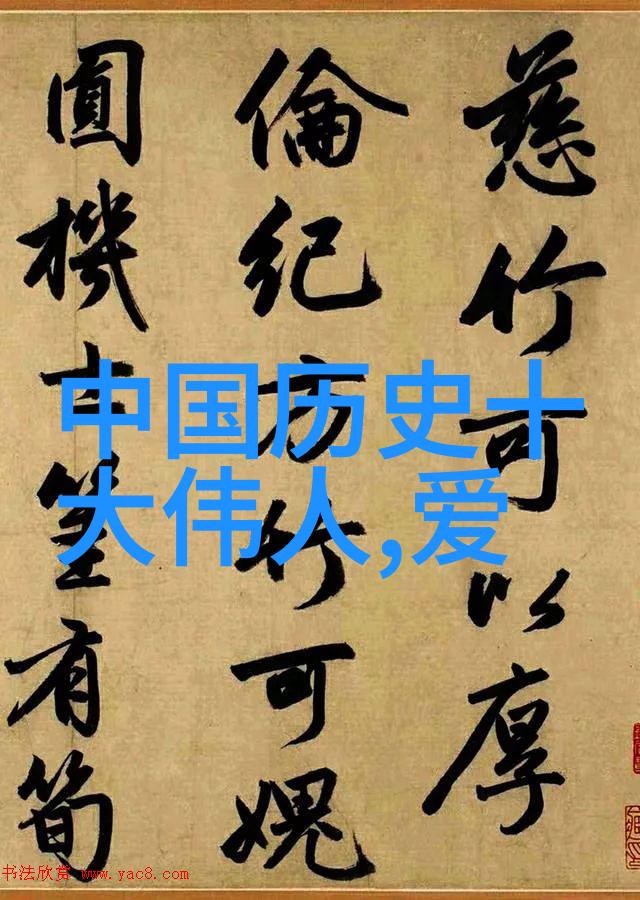 慈竹可以厚
倫紀方竹可媿
圓機士筀有筍
中国历史十
大伟人,爱
书法欣赏 www.yac8.com